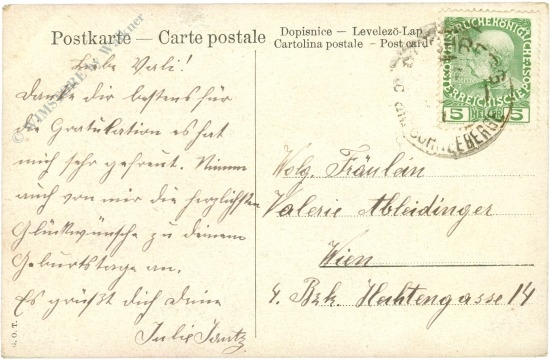 Postkarte — Carte postale
Dopisnice — Levelező-Lap
Cartolina postale — Post card
Liebe Vali!
Danke dir bestens für
die Gratulation es hat
mich sehr gefreut. Nimm
auch von mir die herzlichsten
Glückwünsche zu deinem
Geburtstage an.
Es grüßt dich deine
Julie Jantz
Wolg. Fräulein
Valerie Ableidinger
Wien
4. Bzk. Hechtengasse 14
5 5
SCHNEEBERG
G.O.T.